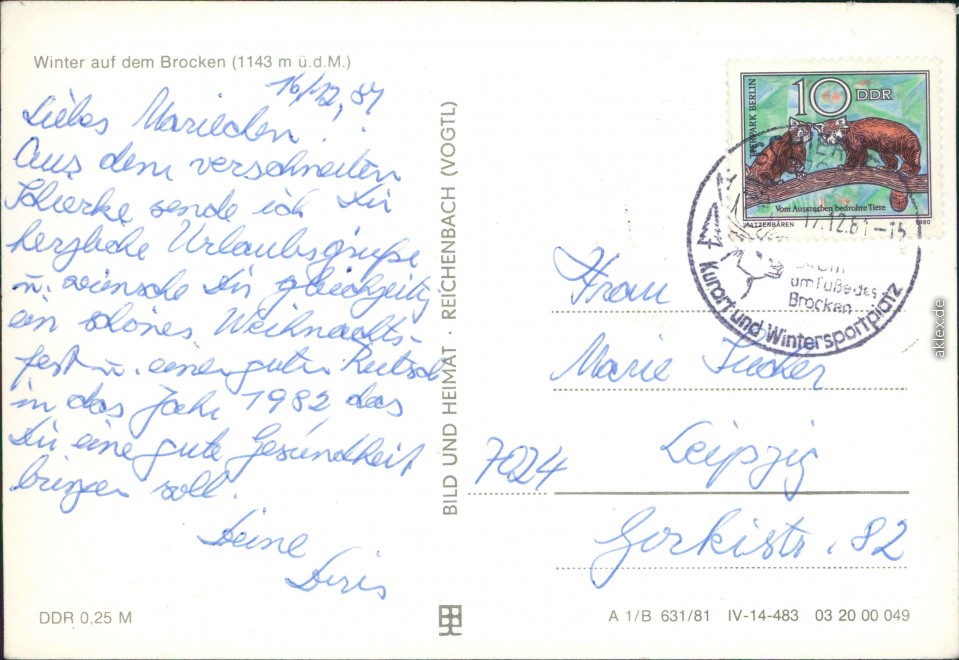 Winter auf dem Brocken (1143 m ü.d.M.)
16/12, 81
Liebes Mariechen!
Aus dem verschneiten
Schierke sende ich Dir
herzliche Urlaubsgrüße
u. wünsche Dir gleichzeitig
ein schönes Weihnachts-
fest u. einen guten Rutsch
in das Jahr 1982 das
Dir eine gute Gesundheit
bringen soll.
Deine
Doris
DDR 0,25 M
BILD UND HEIMAT · REICHENBACH (VOGTL)
TIERPARK BERLIN
10 DDR
Vom Aussterben bedrohte Tiere
KATZENBÄREN 1980
17.12.81-15
am Fuße des
Brocken
Kurort und Wintersportplatz
Frau
Marie
7024 Leipzig
Gorkistr. 82
A 1/B 631/81 IV-14-483 03 20 00 049
aklex.de